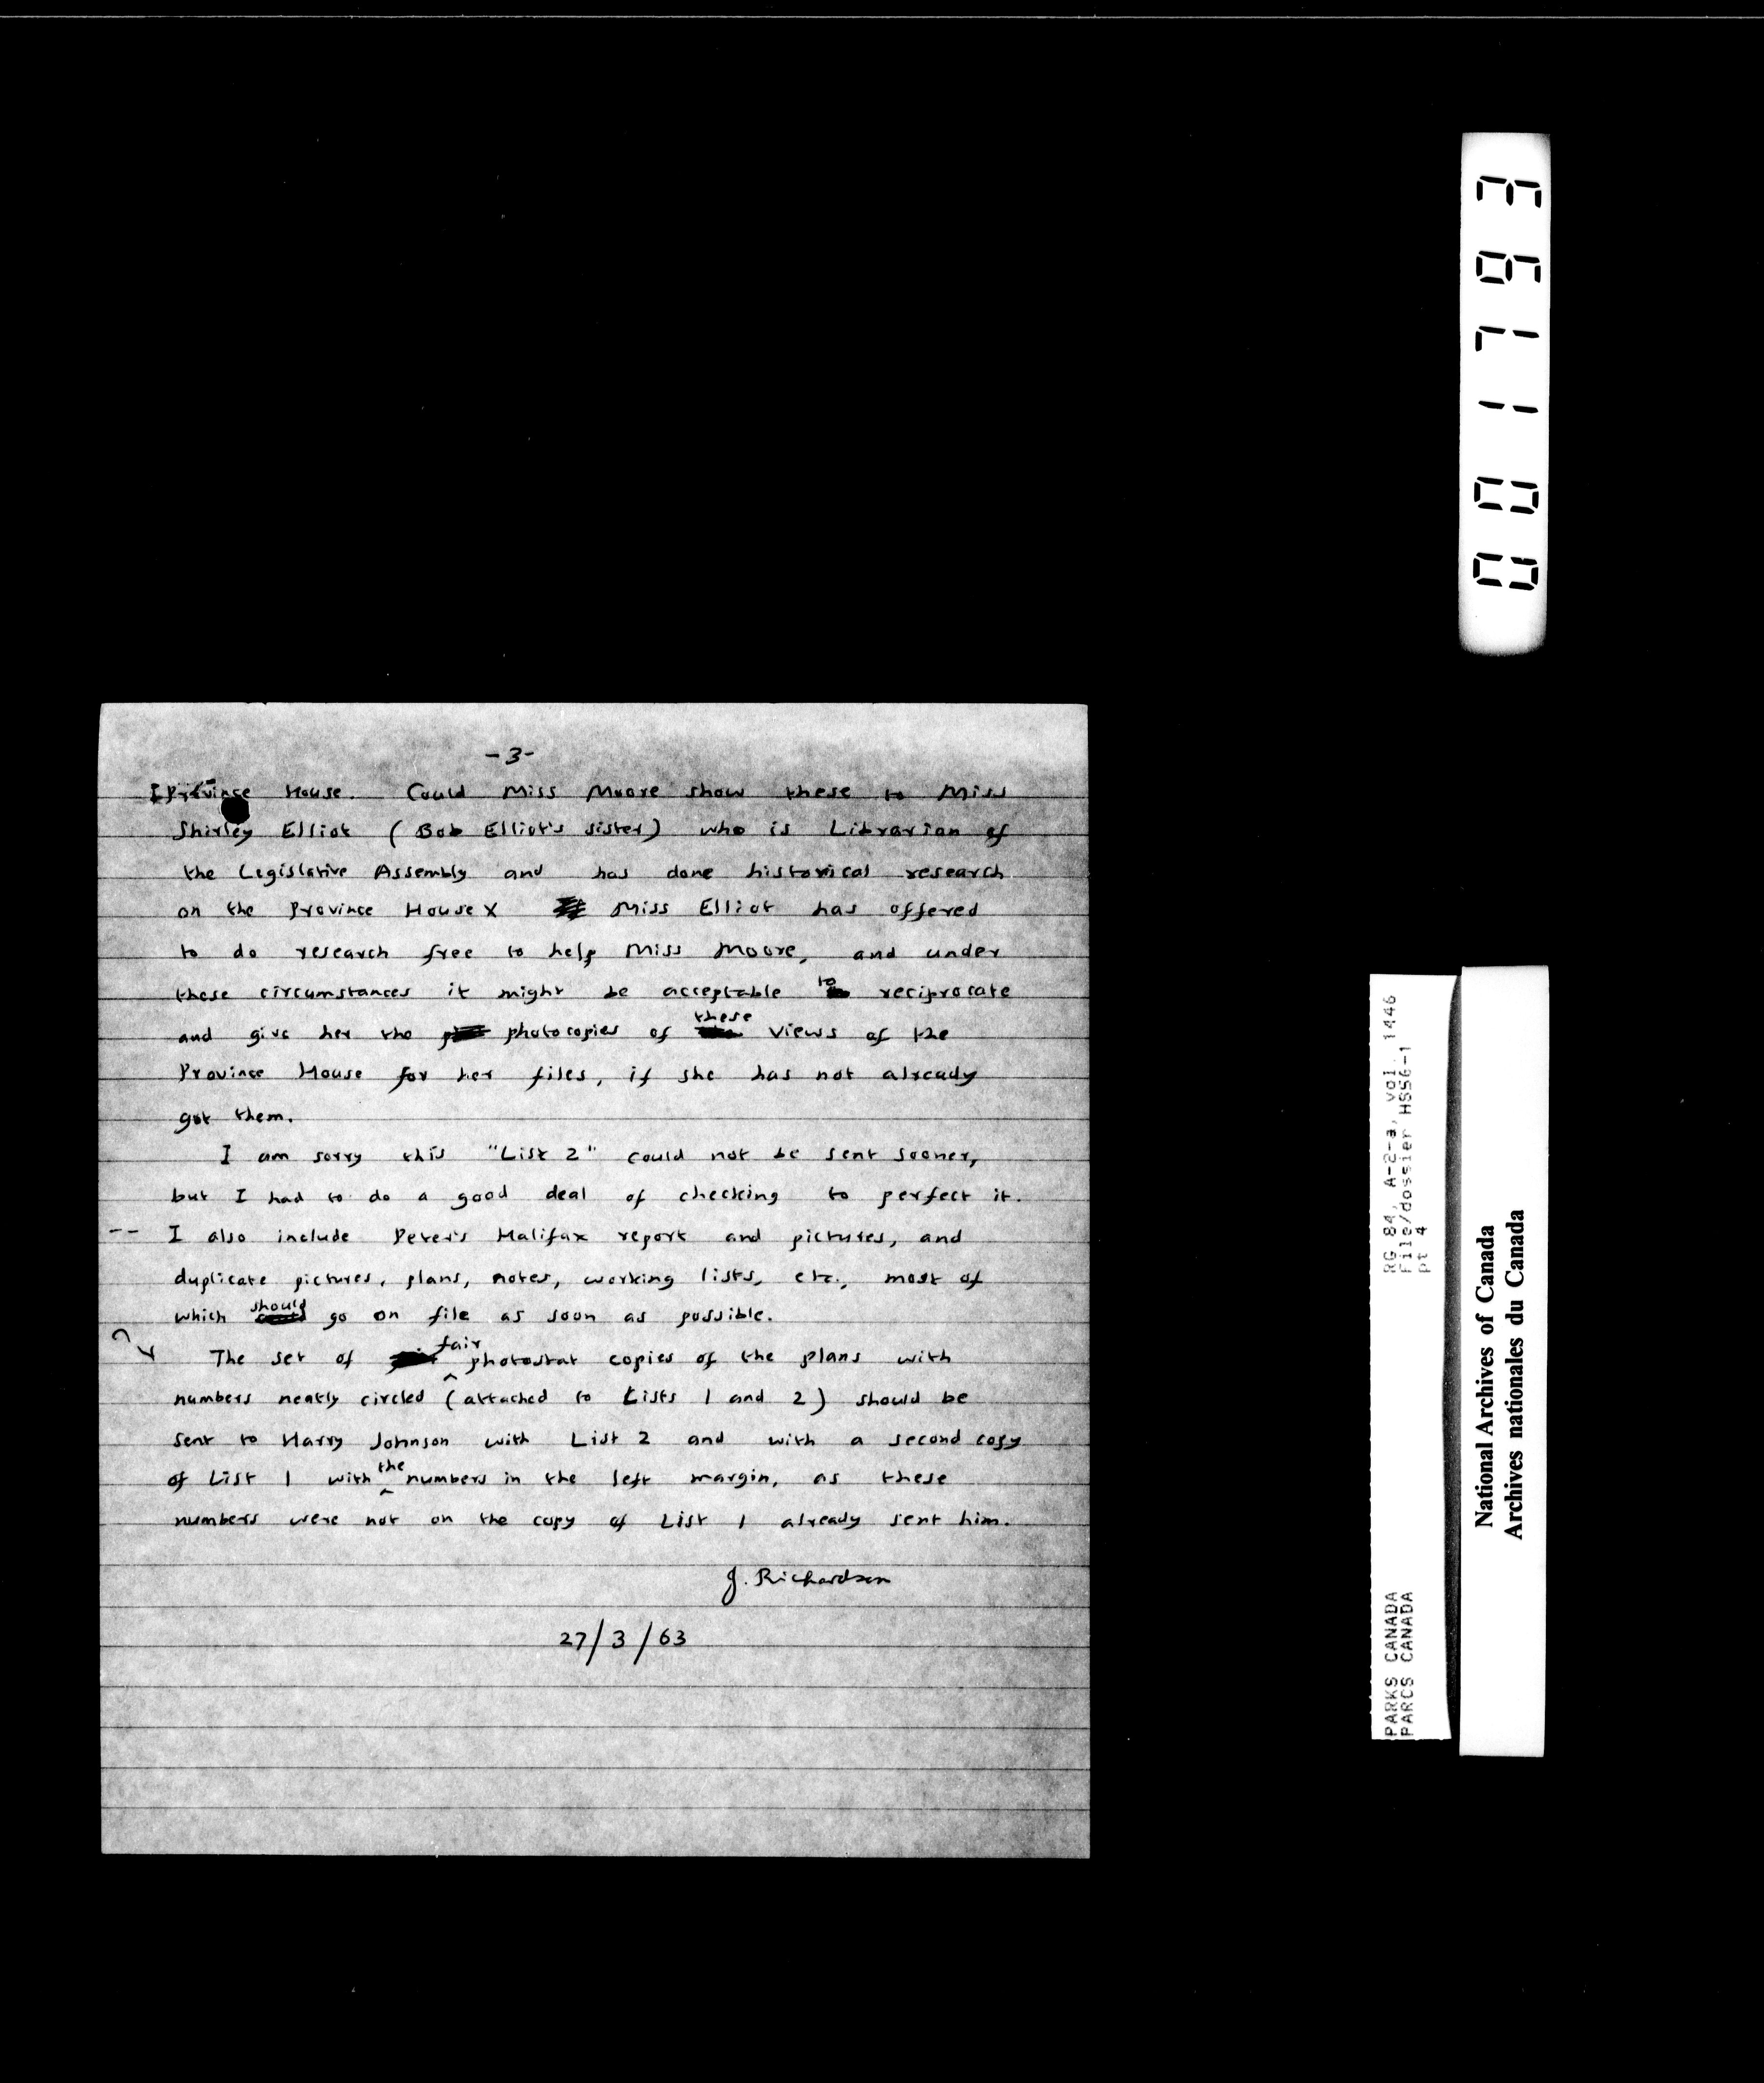 -3-
Province House. Could Miss Moore show these to Miss
Shirley Elliot (Bob Elliot's sister) who is Librarian of
the Legislative Assembly and has done historical research
on the Province House X Miss Elliot has offered
to do research free to help Miss Moore, and under
these circumstances it might be acceptable to reciprocate
and give her the photocopies of these views of the
Province House for her files, if she has not already
got them.
I am sorry this "List 2" could not be sent sooner,
but I had to do a good deal of checking to perfect it.
-- I also include Peter's Halifax report and pictures, and
duplicate pictures, plans, notes, working lists, etc., most of
which should go on file as soon as possible.
The set of fair photostat copies of the plans with
numbers neatly circled (attached to Lists 1 and 2) should be
sent to Harry Johnson with List 2 and with a second copy
of List 1 with the numbers in the left margin, as these
numbers were not on the copy of List 1 already sent him.
J. Richardson
27/3/63
001793
PARKS CANADA RG 84, A-2-a, vol. 1446
PARCS CANADA File/dossier HSS6-1
pt 4
National Archives of Canada
Archives nationales du Canada